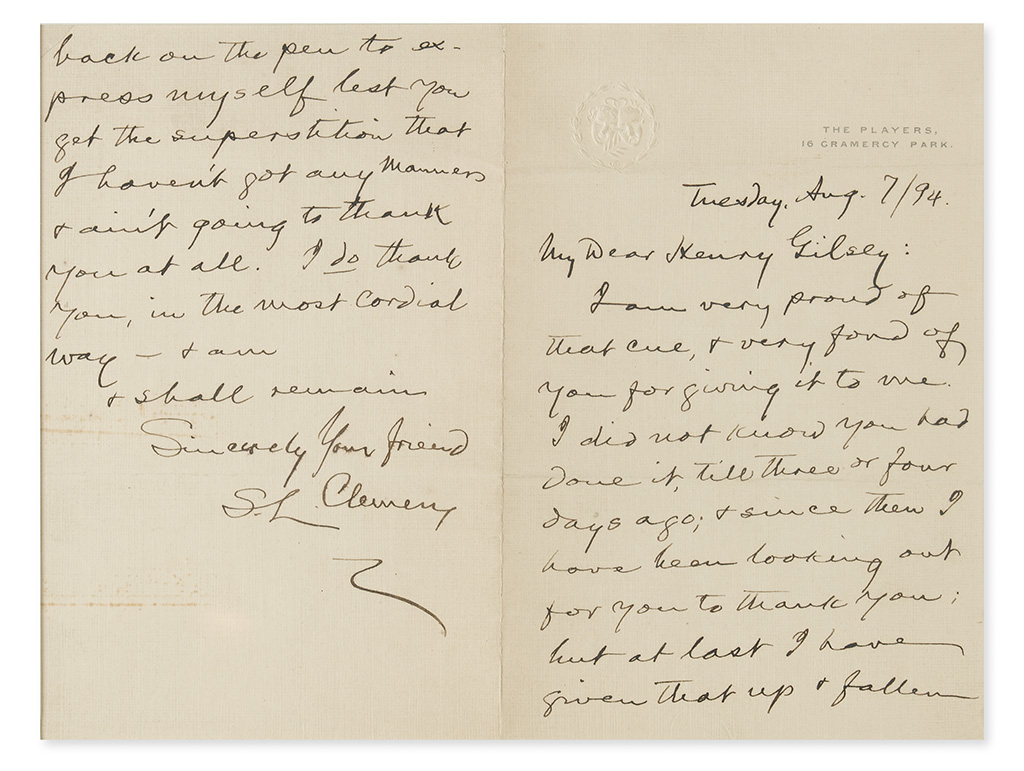 THE PLAYERS,
16 GRAMERCY PARK.
Tuesday, Aug. 7/94.
My Dear Henry Gilsey:
I am very proud of
that cue, & very fond of
you for giving it to me.
I did not know you had
done it, till three or four
days ago; & since then I
have been looking out
for you to thank you;
but at last I have
given that up & fallen
back on the pen to ex-
press myself lest you
get the superstition that
I haven't got any manners
& ain't going to thank
you at all. I do thank
you, in the most cordial
way — & am
& shall remain
Sincerely Your friend
S. L. Clemens